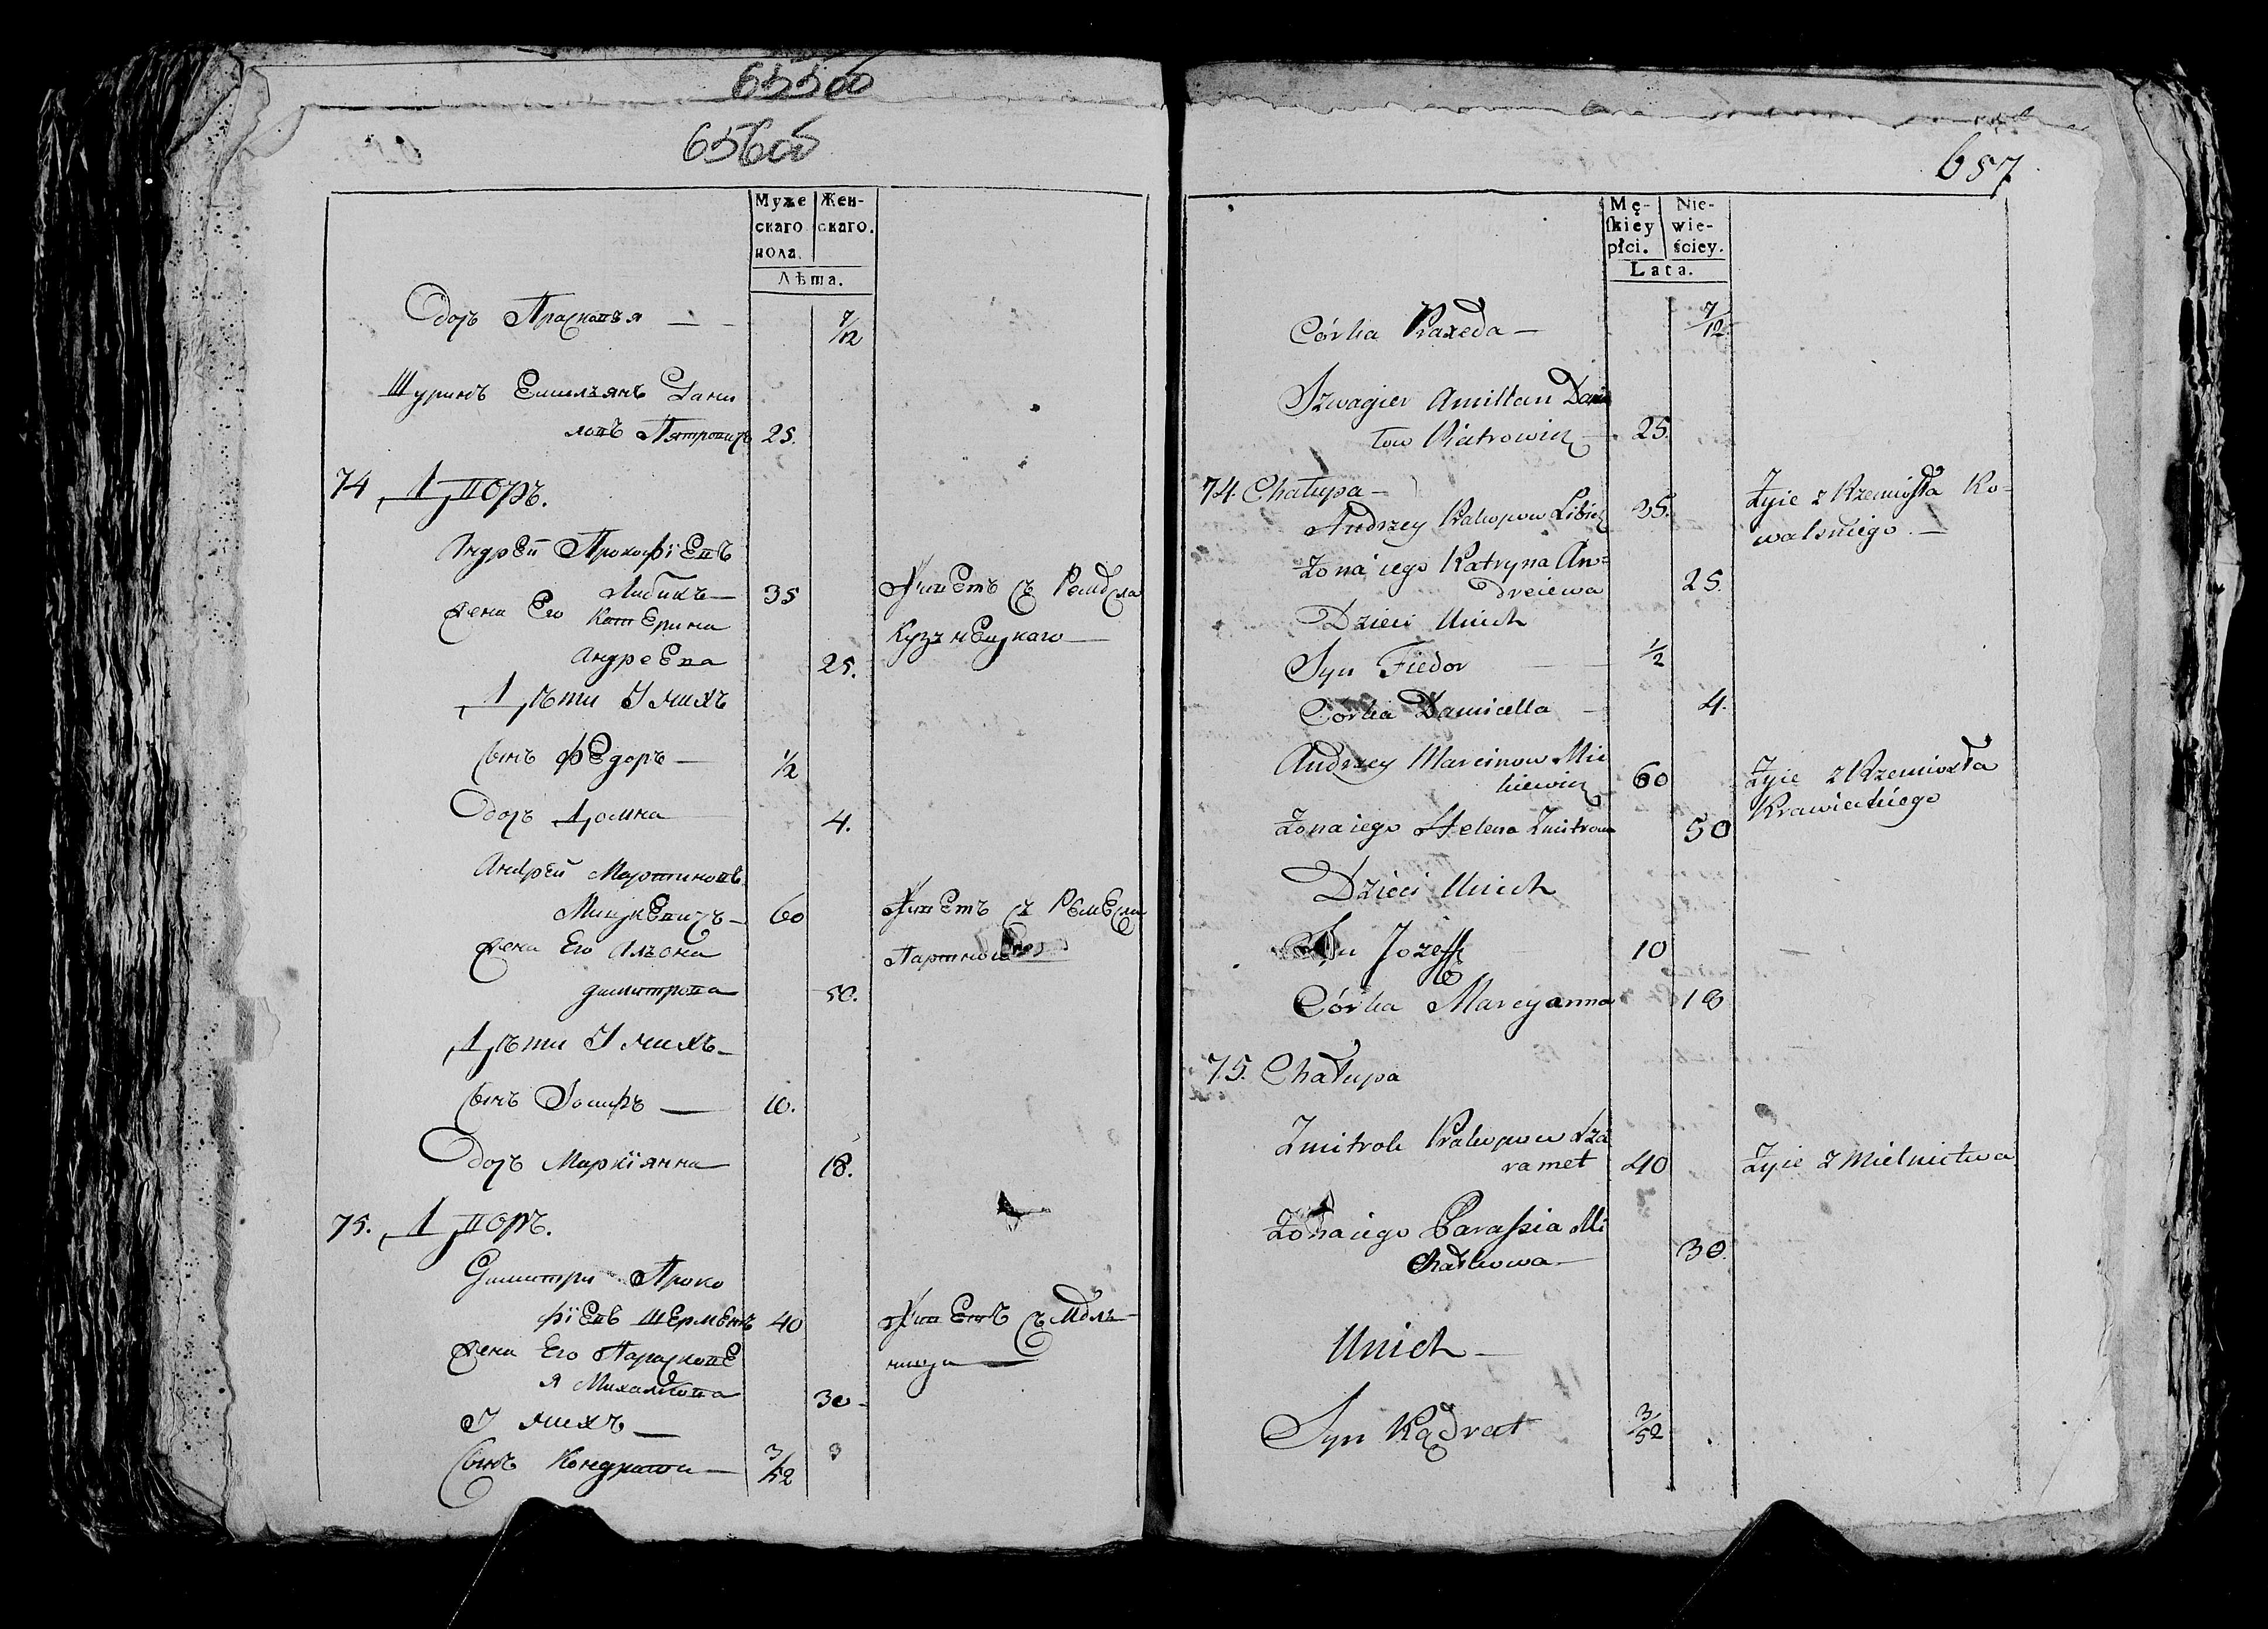 655об
656об
Муже Жен-
скаго скаго.
пола.
Лѣта.
Дочь Прасковья — — 7/12
Шуринъ Емильянъ Дани
ловъ Пятровичъ 25.
74 Дворъ.
Андрей Прокофіевъ
Либикъ — 35 Живетъ съ Ремесла
Жена Его Катерина Кузьнецкаго —
Андреева 25.
Дѣти У нихъ
Сынъ Федоръ — 1/2
Дочь Домна 4.
Андрей Мартиновъ
Мицкевичъ — 60 Живетъ съ Ремесла
Жена Его Алѣона
димитрова 50.
Дѣти У нихъ —
Сынъ Іосифъ — 10.
Дочь Маркіянна 18.
75. Дворъ.
Димитри Проко
фіевъ Шерметъ 40 Живетъ съ Мель-
Жена Его Парасковѣ ницы —
я Михалкова 30 -
У нихъ —
Сынъ Кондрати — 3/52 3
657
Mę- Nie-
skiey wie-
płci. ściey.
Lata.
Córka Praxeda — 7/12
Szwagier Amillan Dani
łow Piatrowicz — 25.
74. Chałupa — Żyie z Rzemiosła Ko-
Andrzey Prakopow Libicz 35. walskiego. —
Żona iego Katryna An=
dreiewa 25.
Dzieci Unich
Syn Fiedor — 1/2
Córka Damicella — 4.
Andrzey Marcinow Mic
kiewicz 60 Żyie z Rzemiosła
Krawieckiego
Żona iego Helena Zmitrowa 50
Dzieci Unich
Syn Jozeff 10
Córka Marcyanna 18
75. Chałupa
Zmitrok Prakopow Sza
ramet 40 Żyie z Mielnictwa
Żona iego Parassia Mi
chałkowa — 30.
Unich —
Syn Kądrat 3/52